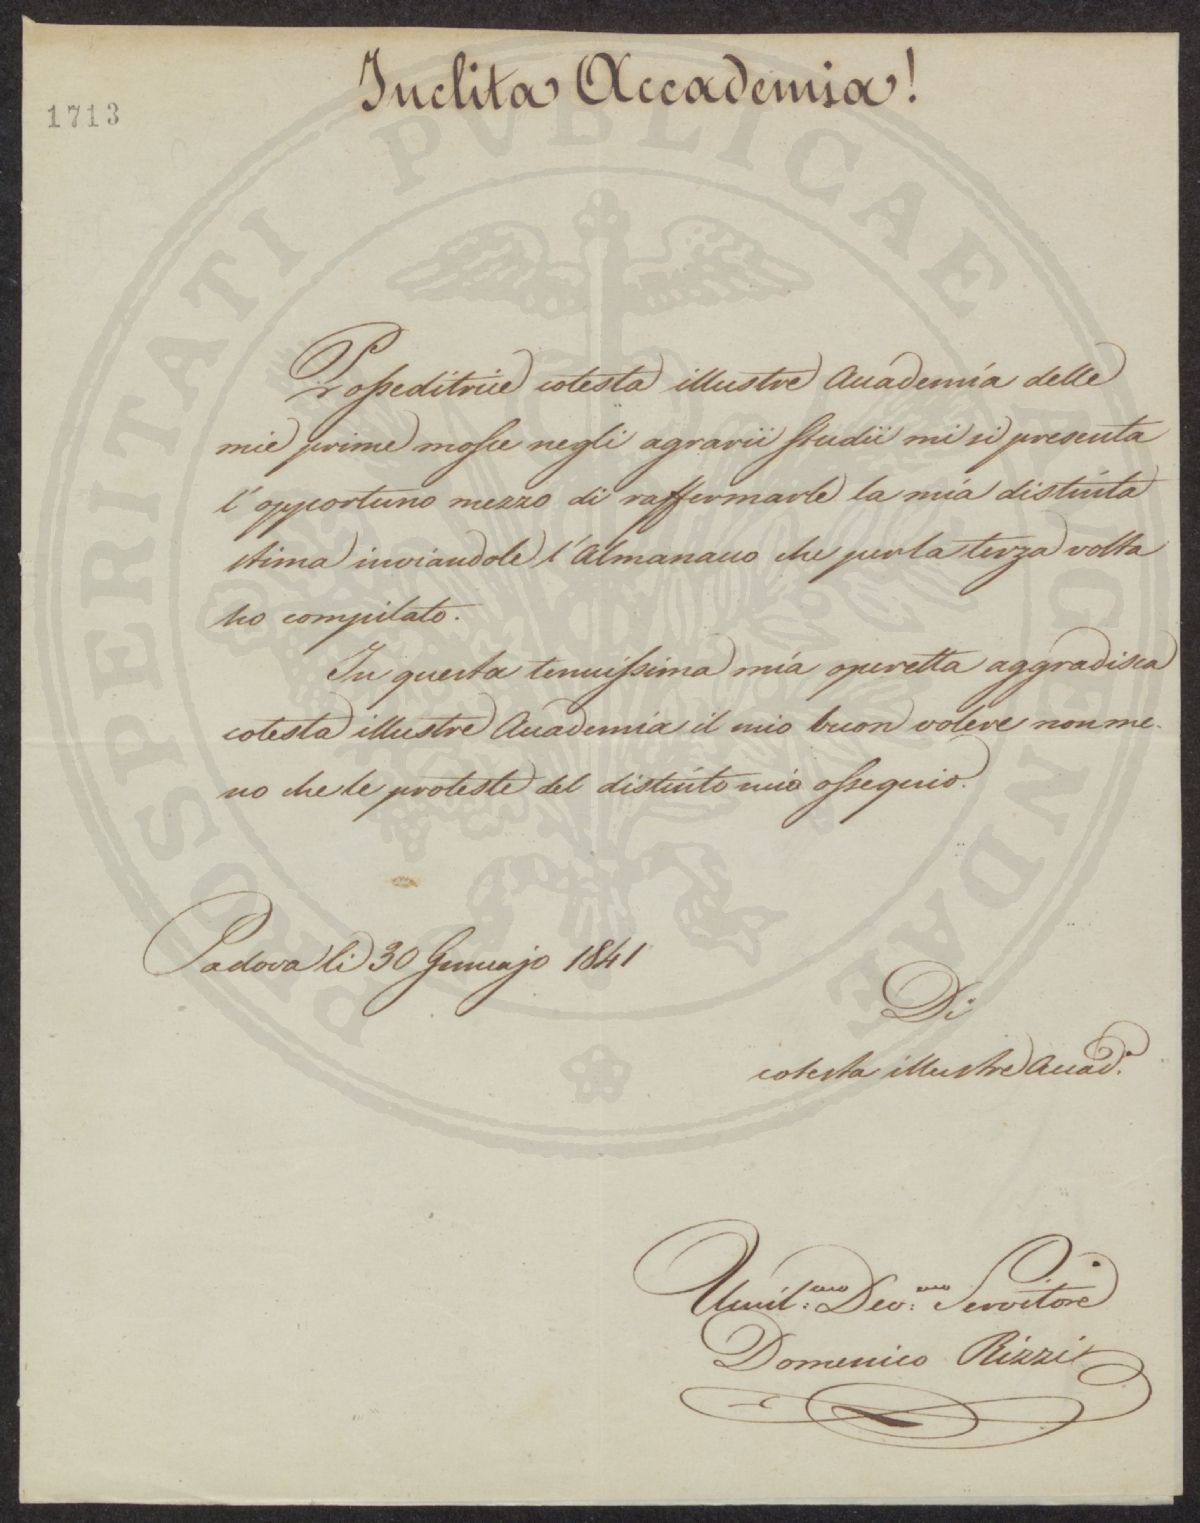 Inclita Accademia!
1713
Posseditrice cotesta illustre Accademia delle
mie prime mosse negli agrarii studii mi si presenta
l'opportuno mezzo di raffermarle la mia distinta
stima inviandole l'Almanacco che per la terza volta
ho compilato.
In questa tenuissima mia operetta aggradisca
cotesta illustre Accademia il mio buon volere non me-
no che le proteste del distinto mio ossequio.
Padova li 30 Gennajo 1841
Di
cotesta illustre Accad.
Umil.mo Dev.mo Servitore
Domenico Rizzi
PROSPERITATI PVBLICAE AVGENDAE